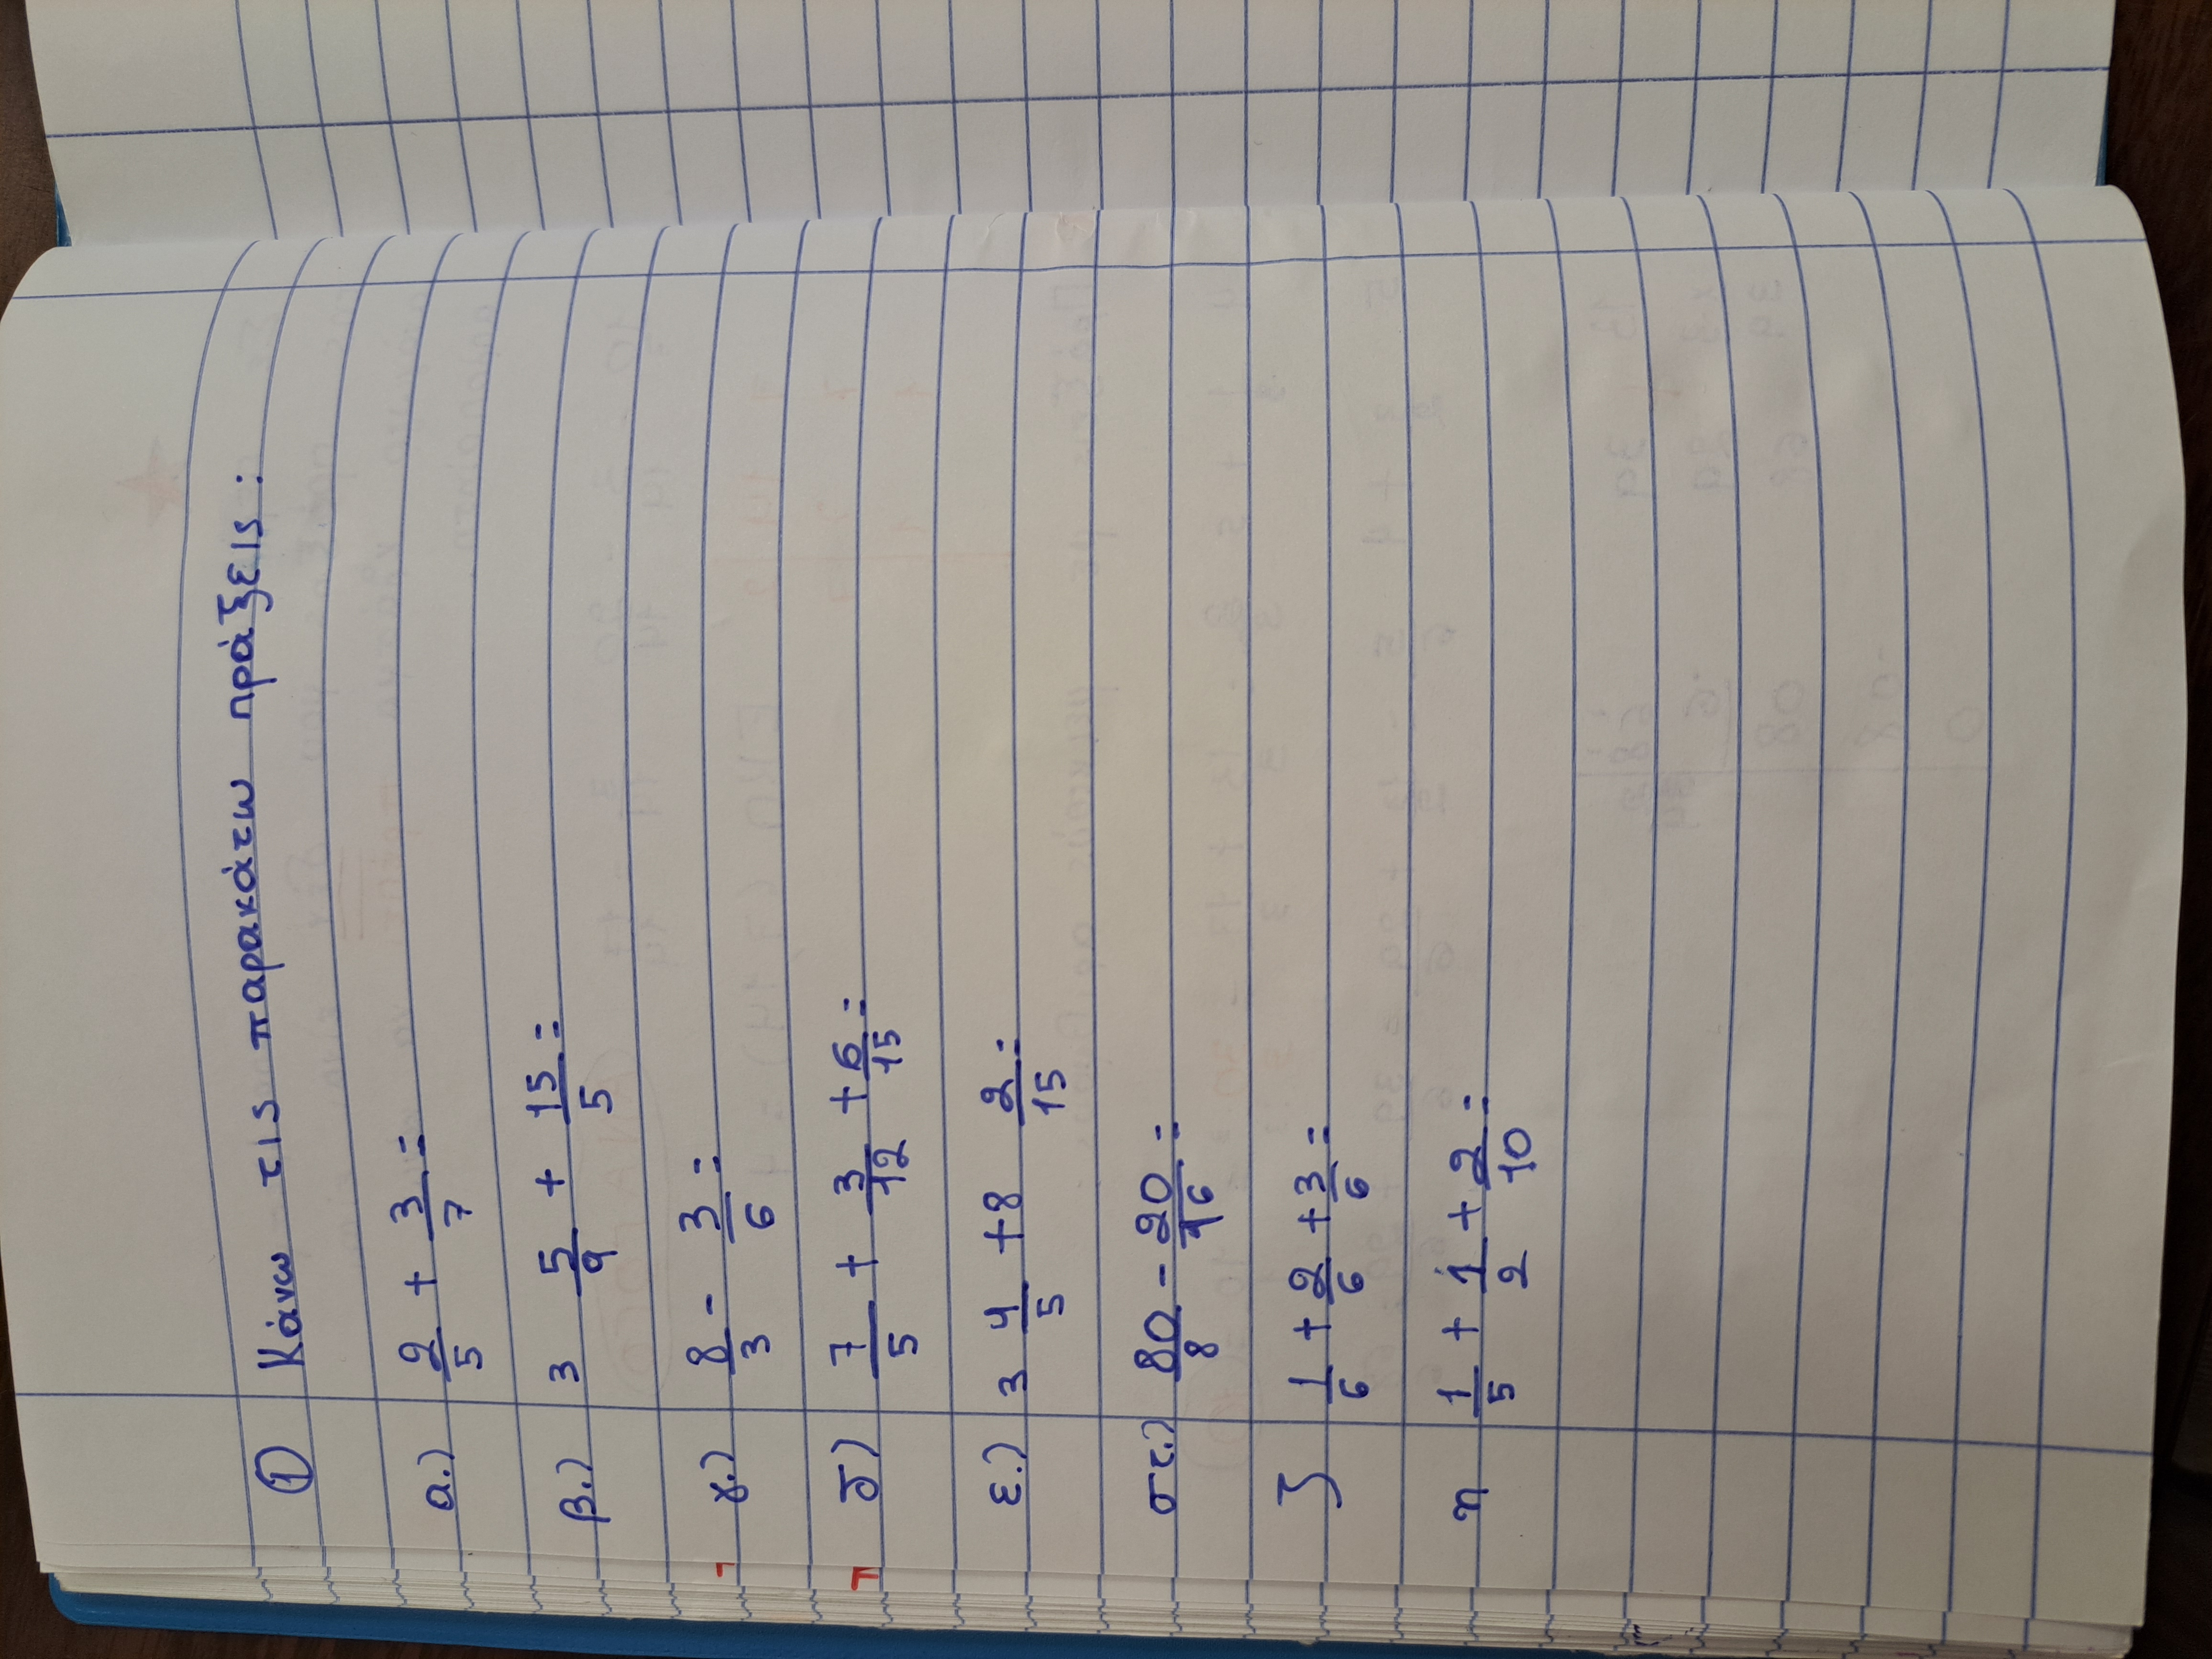 ① Κάνω τις παρακάτω πράξεις:
α.) 2/5 + 3/7 =
β.) 3 5/9 + 15/5 =
γ.) 8/3 - 3/6 =
δ) 7/5 + 3/12 + 6/15 =
ε.) 3 4/5 + 8 2/15 =
στ.) 80/8 - 20/16 =
ζ 1/6 + 2/6 + 3/6 =
η 1/5 + 1/2 + 2/10 =